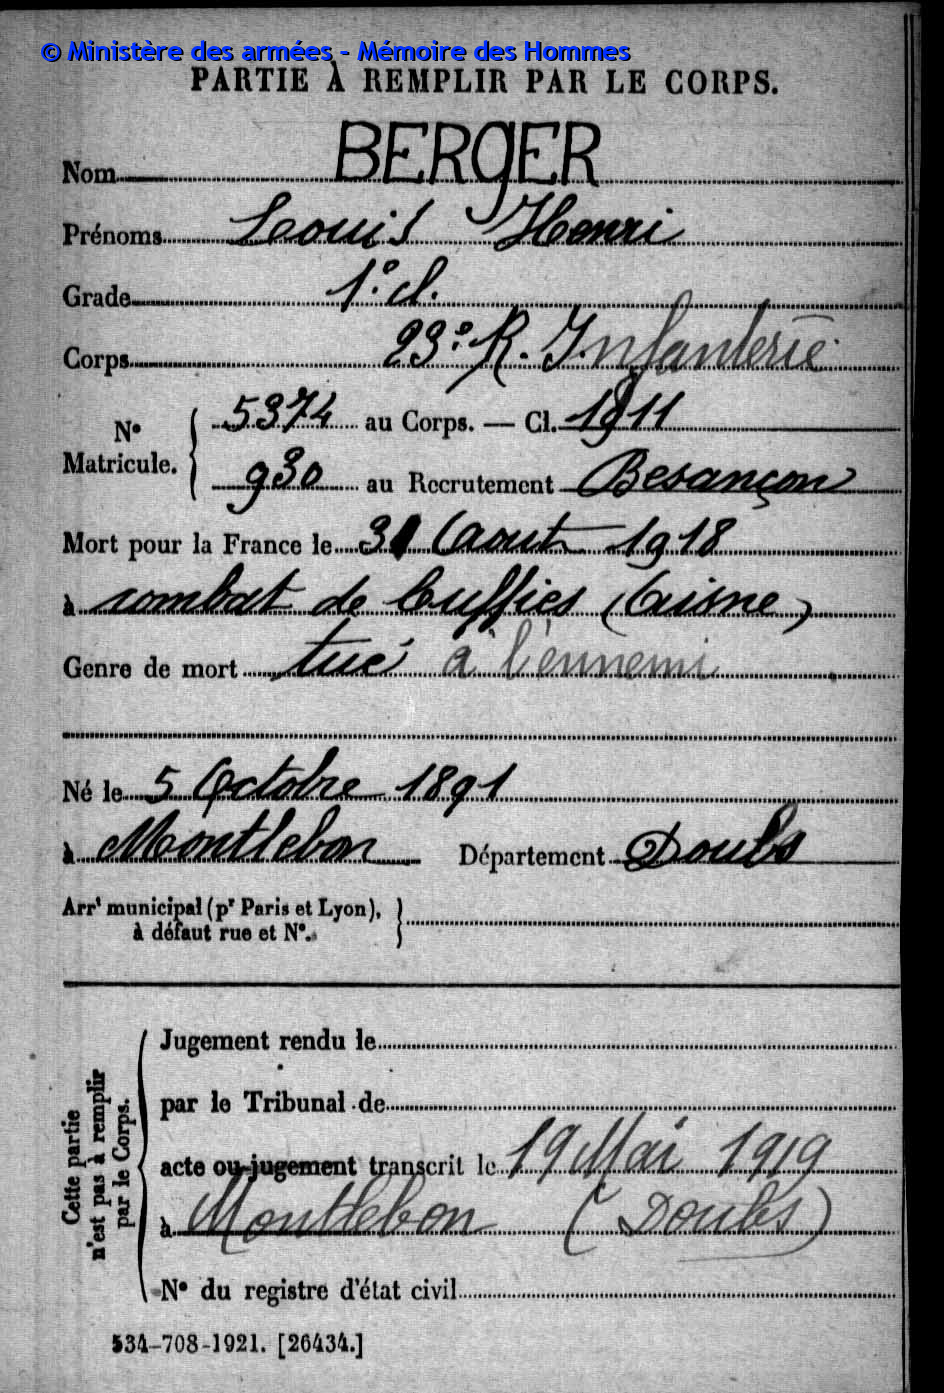 © Ministère des armées - Mémoire des Hommes
PARTIE À REMPLIR PAR LE CORPS.
Nom BERGER
Prénoms Louis Henri
Grade 1e cl.
Corps 23e R. Infanterie
N° Matricule. { 5374 au Corps. — Cl. 1911
930 au Recrutement Besançon
Mort pour la France le 31 Aout 1918
à combat de Cuffies (Aisne)
Genre de mort tué à l'ennemi
Né le 5 Octobre 1891
à Montlebon Département Doubs
Arrt municipal (pr Paris et Lyon), }
à défaut rue et N°.
Cette partie n'est pas à remplir par le Corps.
Jugement rendu le
par le Tribunal de
acte ou jugement transcrit le 19 Mai 1919
à Montlebon (Doubs)
N° du registre d'état civil
534-708-1921. [26434.]